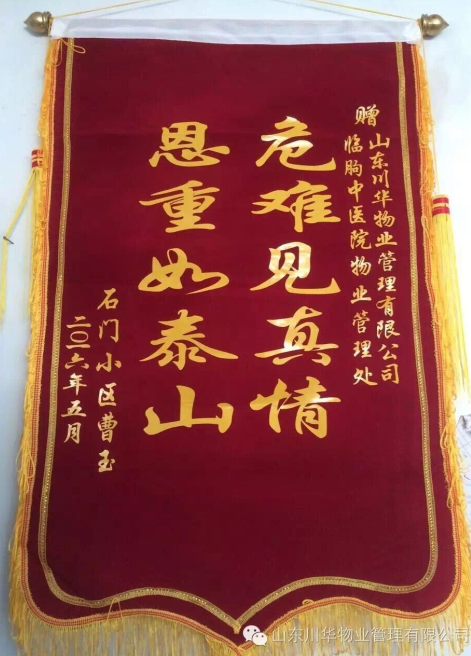 赠山东川华物业管理有限公司
临朐中医院物业管理处
危难见真情
恩重如泰山
石门小区曹玉
二〇一六年五月
山东川华物业管理有限公司